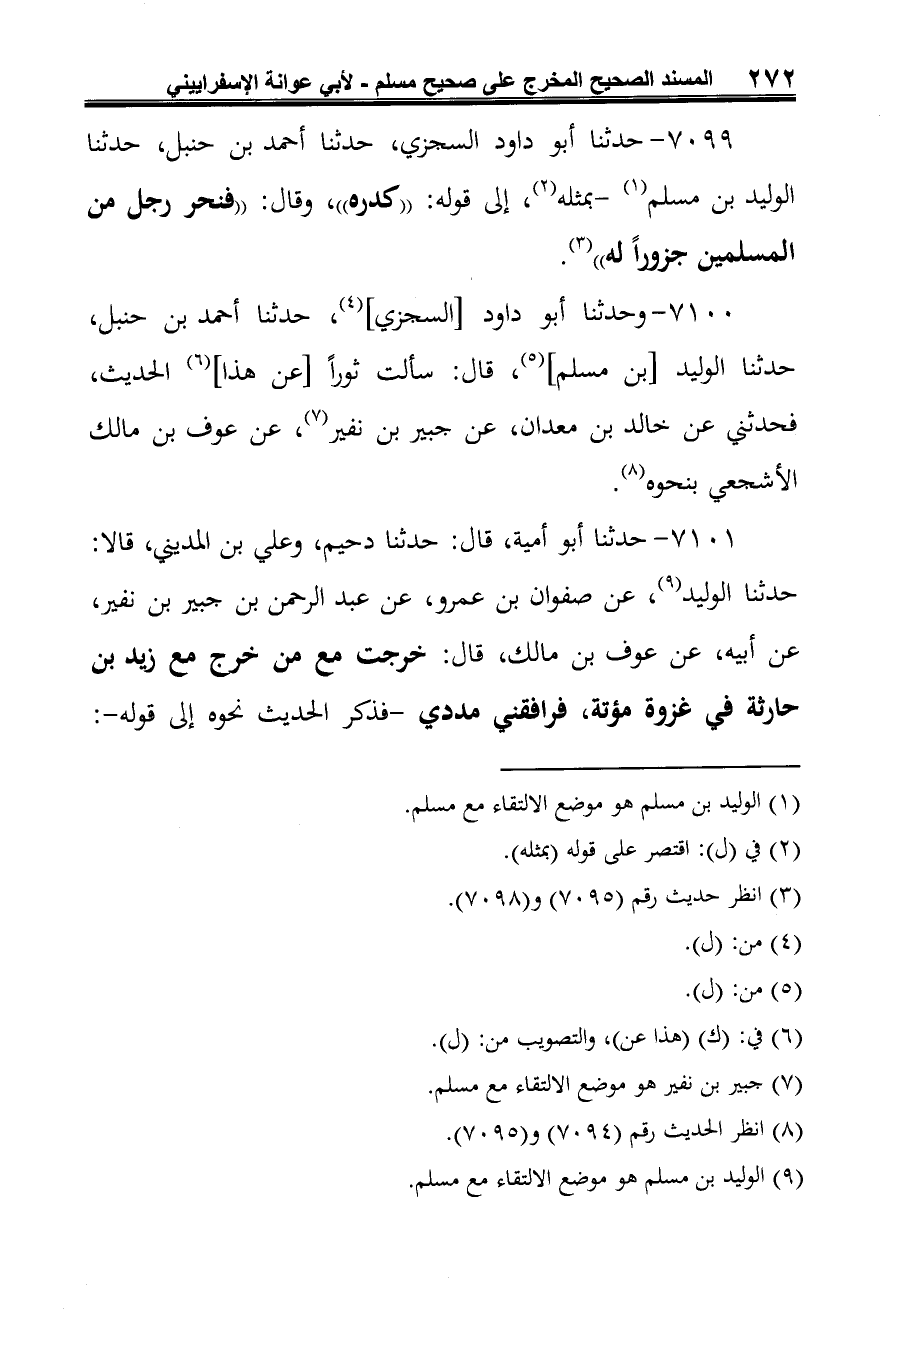 ٢٧٢ المسند الصحيح المخرج على صحيح مسلم - لأبي عوانة الإسفراييني
٧٠٩٩- حدثنا أبو داود السجزي، حدثنا أحمد بن حنبل، حدثنا
الوليد بن مسلم(١) -بمثله(٢)، إلى قوله: ((كدره))، وقال: ((فنحر رجل من
المسلمين جزوراً له))(٣).
٧١٠٠- وحدثنا أبو داود [السجزي](٤)، حدثنا أحمد بن حنبل،
حدثنا الوليد [بن مسلم](٥)، قال: سألت ثوراً [عن هذا](٦) الحديث،
فحدثني عن خالد بن معدان، عن جبير بن نفير(٧)، عن عوف بن مالك
الأشجعي بنحوه(٨).
٧١٠١- حدثنا أبو أمية، قال: حدثنا دحيم، وعلي بن المديني، قالا:
حدثنا الوليد(٩)، عن صفوان بن عمرو، عن عبد الرحمن بن جبير بن نفير،
عن أبيه، عن عوف بن مالك، قال: خرجت مع من خرج مع زيد بن
حارثة في غزوة مؤتة، فرافقني مددي -فذكر الحديث نحوه إلى قوله-:
(١) الوليد بن مسلم هو موضع الالتقاء مع مسلم.
(٢) في (ل): اقتصر على قوله (بمثله).
(٣) انظر حديث رقم (٧٠٩٥) و(٧٠٩٨).
(٤) من: (ل).
(٥) من: (ل).
(٦) في: (ك) (هذا عن)، والتصويب من: (ل).
(٧) جبير بن نفير هو موضع الالتقاء مع مسلم.
(٨) انظر الحديث رقم (٧٠٩٤) و(٧٠٩٥).
(٩) الوليد بن مسلم هو موضع الالتقاء مع مسلم.